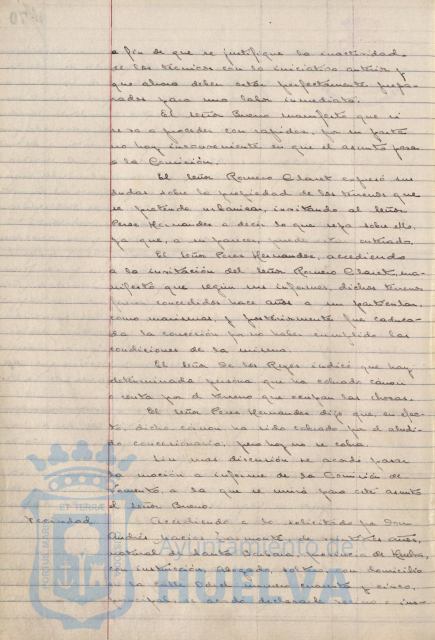 a fin de que se justifique la inactividad
de los técnicos con la iniciativa anterior y
que ahora deben estar perfectamente prepa-
rados para una labor inmediata.
El señor Bueno manifestó que si
se va a proceder con rapidez, por su parte
no hay inconveniente en que el asunto pase
a la Comisión.
El señor Romero Claret expresó sus
dudas sobre la propiedad de los terrenos que
se pretende urbanizar, invitando al señor
Perez Hernandez a decir lo que sepa sobre ello,
ya que, a su parecer, puede estar enterado.
El señor Perez Hernandez, accediendo
a la invitación del señor Romero Claret, ma-
nifestó que según sus informes, dichos terrenos
fueron concedidos hace años a un particular
como marismas, y posteriormente fue caduca-
da la concesión por no haber cumplido las
condiciones de la misma.
El señor De los Reyes indicó que hay
determinada persona que ha cobrado canon
o renta por el terreno que ocupan las chozas.
El señor Perez Hernandez dijo que, en efec-
to, dicho canon ha sido cobrado por el aludido
concesionario, pero hoy no se cobra.
Sin mas discusión se acordó pasar
la moción a informe de la Comisión de
Fomento, a la que se unirá para este asunto
el señor Bueno.
Vecindad
Accediendo a lo solicitado por Don
Andrés
natural de provincia de Huelva,
con instrucción, abogado, soltero, con domicilio
en la calle número cuarenta y cinco,
se acordó declararle vecino e ins-
Ayuntamiento de
HUELVA